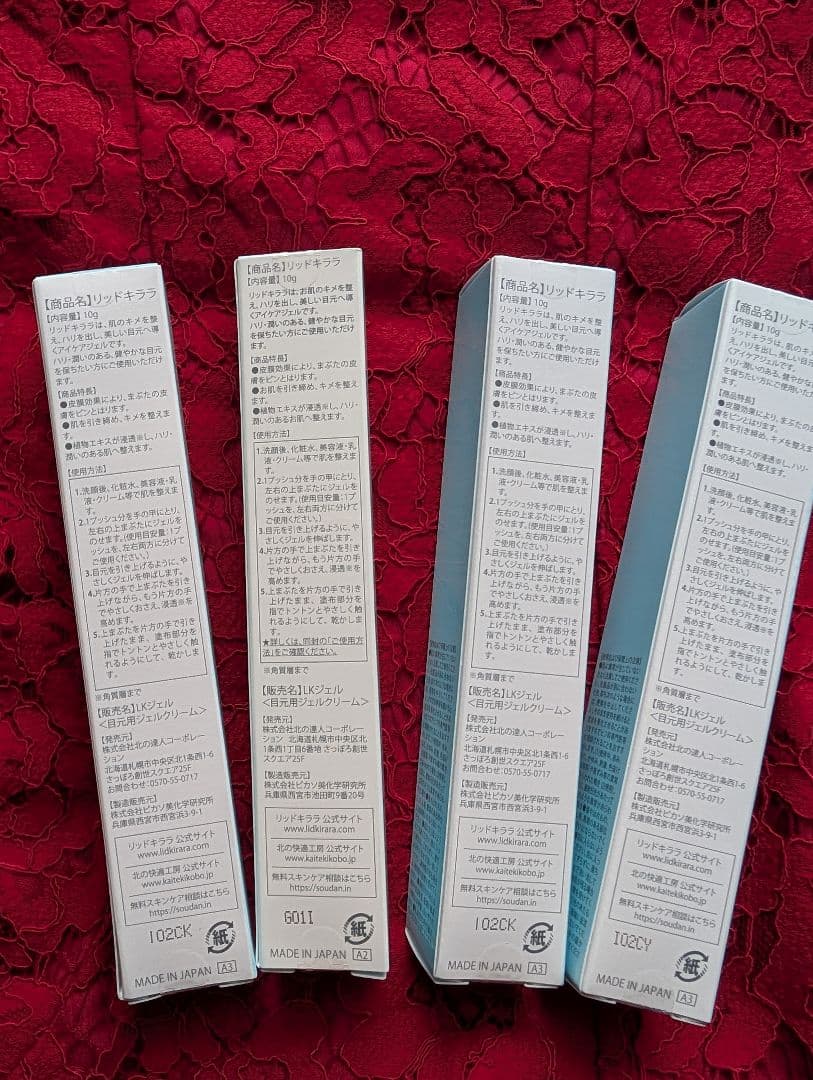 【商品名】リッドキララ
【内容量】10g
リッドキララは、肌のキメを整
え、ハリを出し、美しい目元へ導
くアイケアジェルです。
ハリ・潤いのある、健やかな目元
を保ちたい方にご使用いただけ
ます。
【商品特長】
●皮膜効果により、まぶたの皮
膚をピンとはります。
●肌を引き締め、キメを整えま
す。
●植物エキスが浸透※し、ハリ・
潤いのある肌へ整えます。
【使用方法】
1.洗顔後、化粧水、美容液・乳
液・クリーム等で肌を整えま
す。
2.1プッシュ分を手の甲にとり、
左右の上まぶたにジェルを
のせます。(使用目安量:1プ
ッシュを、左右両方に分けて
ご使用ください。)
3.目元を引き上げるように、や
さしくジェルを伸ばします。
4.片方の手で上まぶたを引き
上げながら、もう片方の手
でやさしくおさえ、浸透※を
高めます。
5.上まぶたを片方の手で引き
上げたまま、塗布部分を
指でトントンとやさしく触
れるようにして、乾かしま
す。
※角質層まで
【販売名】LKジェル
<目元用ジェルクリーム>
【発売元】
株式会社北の達人コーポレー
ション
北海道札幌市中央区北1条西1-6
さっぽろ創世スクエア25F
お問合わせ:0570-55-0717
【製造販売元】
株式会社ピカソ美化学研究所
兵庫県西宮市西宮浜3-9-1
リッドキララ 公式サイト
www.lidkirara.com
北の快適工房 公式サイト
www.kaitekikobo.jp
無料スキンケア相談はこちら
https://soudan.in
I02CK
紙
MADE IN JAPAN A3
【商品名】リッドキララ
【内容量】10g
リッドキララは、お肌のキメを整
え、ハリを出し、美しい目元へ導
くアイケアジェルです。
ハリ・潤いのある、健やかな目元
を保ちたい方にご使用いただけ
ます。
【商品特長】
●皮膜効果により、まぶたの皮
膚をピンとはります。
●お肌を引き締め、キメを整え
ます。
●植物エキスが浸透※し、ハリ・
潤いのあるお肌へ整えます。
【使用方法】
1.洗顔後、化粧水、美容液・乳
液・クリーム等で肌を整えま
す。
2.1プッシュ分を手の甲にとり、
左右の上まぶたにジェルを
のせます。(使用目安量:1プッ
シュを、左右両方に分けて
ご使用ください。)
3.目元を引き上げるように、や
さしくジェルを伸ばします。
4.片方の手で上まぶたを引き
上げながら、もう片方の手
でやさしくおさえ、浸透※を
高めます。
5.上まぶたを片方の手で引き
上げたまま、塗布部分を
指でトントンとやさしく触
れるようにして、乾かします。
★詳しくは、同封の「ご使用方
法」をご確認ください。
※角質層まで
【販売名】LKジェル
<目元用ジェルクリーム>
【発売元】
株式会社北の達人コーポレー
ション 北海道札幌市中央区北
1条西1丁目6番地 さっぽろ創世
スクエア25F
【製造販売元】
株式会社ピカソ美化学研究所
兵庫県西宮市池田町9番20号
リッドキララ 公式サイト
www.lidkirara.com
北の快適工房 公式サイト
www.kaitekikobo.jp
無料スキンケア相談はこちら
https://soudan.in
G01I
紙
MADE IN JAPAN A2
【商品名】リッドキララ
【内容量】10g
リッドキララは、肌のキメを整
え、ハリを出し、美しい目元へ導
くアイケアジェルです。
ハリ・潤いのある、健やかな目元
を保ちたい方にご使用いただけ
ます。
【商品特長】
●皮膜効果により、まぶたの皮
膚をピンとはります。
●肌を引き締め、キメを整えま
す。
●植物エキスが浸透※し、ハリ・
潤いのある肌へ整えます。
【使用方法】
1.洗顔後、化粧水、美容液・乳
液・クリーム等で肌を整えま
す。
2.1プッシュ分を手の甲にとり、
左右の上まぶたにジェルを
のせます。(使用目安量:1プ
ッシュを、左右両方に分けて
ご使用ください。)
3.目元を引き上げるように、や
さしくジェルを伸ばします。
4.片方の手で上まぶたを引き
上げながら、もう片方の手
でやさしくおさえ、浸透※を
高めます。
5.上まぶたを片方の手で引き
上げたまま、塗布部分を
指でトントンとやさしく触
れるようにして、乾かしま
す。
※角質層まで
【販売名】LKジェル
<目元用ジェルクリーム>
【発売元】
株式会社北の達人コーポレー
ション
北海道札幌市中央区北1条西1-6
さっぽろ創世スクエア25F
お問合わせ:0570-55-0717
【製造販売元】
株式会社ピカソ美化学研究所
兵庫県西宮市西宮浜3-9-1
リッドキララ 公式サイト
www.lidkirara.com
北の快適工房 公式サイト
www.kaitekikobo.jp
無料スキンケア相談はこちら
https://soudan.in
I02CK
紙
MADE IN JAPAN A3
【商品名】リッドキ
【内容量】10g
リッドキララは、肌のキメを整
え、ハリを出し、美しい目元へ
くアイケアジェルです。
ハリ・潤いのある、健やかな
を保ちたい方にご使用いただ
ます。
【商品特長】
●皮膜効果により、まぶたの
膚をピンとはります。
●肌を引き締め、キメを整えま
す。
●植物エキスが浸透※し、ハリ・
潤いのある肌へ整えます。
【使用方法】
1.洗顔後、化粧水、美容液・乳
液・クリーム等で肌を整えま
す。
2.1プッシュ分を手の甲にとり、
左右の上まぶたにジェルを
のせます。(使用目安量:1プ
ッシュを、左右両方に分けて
ご使用ください。)
3.目元を引き上げるように、や
さしくジェルを伸ばします。
4.片方の手で上まぶたを引き
上げながら、もう片方の手
でやさしくおさえ、浸透※を
高めます。
5.上まぶたを片方の手で引き
上げたまま、塗布部分を
指でトントンとやさしく触
れるようにして、乾かしま
す。
※角質層まで
【販売名】LKジェル
<目元用ジェルクリーム>
【発売元】
株式会社北の達人コーポレー
ション
北海道札幌市中央区北1条西1-6
さっぽろ創世スクエア25F
お問合わせ:0570-55-0717
【製造販売元】
株式会社ピカソ美化学研究所
兵庫県西宮市西宮浜3-9-1
リッドキララ 公式サイト
www.lidkirara.com
北の快適工房 公式サイト
www.kaitekikobo.jp
無料スキンケア相談はこちら
https://soudan.in
I02CY
紙
MADE IN JAPAN A3